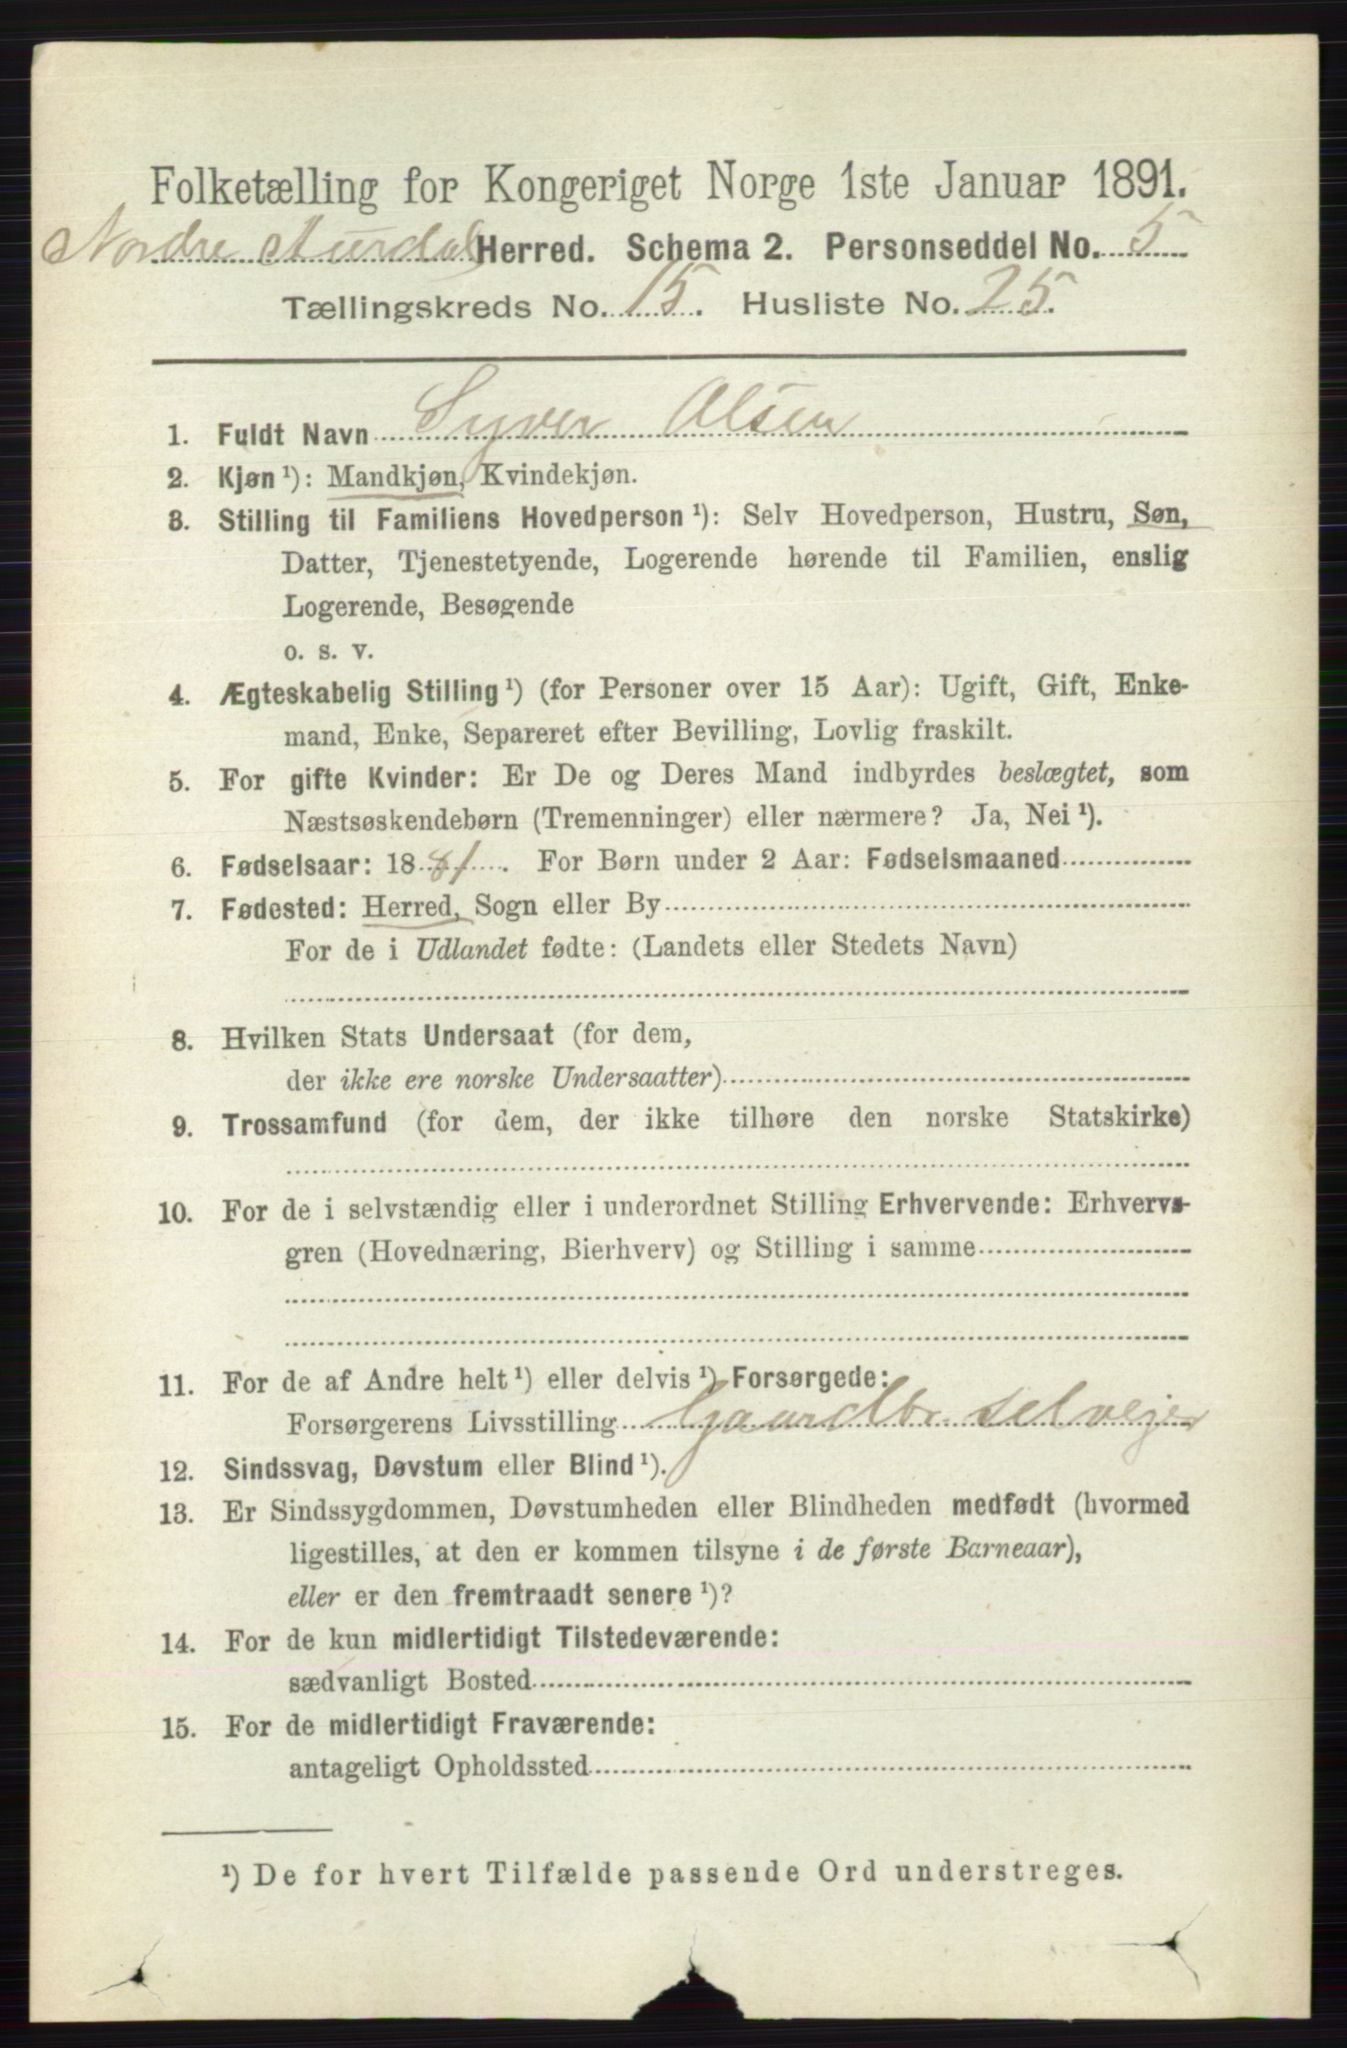 Folketælling for Kongeriget Norge 1ste Januar 1891.
Nordre Aurdal Herred. Schema 2. Personseddel No. 5
Tællingskreds No. 15. Husliste No. 25.
1. Fuldt Navn Syver Olsen
2. Kjøn ¹): Mandkjøn, Kvindekjøn.
3. Stilling til Familiens Hovedperson ¹): Selv Hovedperson, Hustru, Søn,
Datter, Tjenestetyende, Logerende hørende til Familien, enslig
Logerende, Besøgende
o. s. v.
4. Ægteskabelig Stilling ¹) (for Personer over 15 Aar): Ugift, Gift, Enke-
mand, Enke, Separeret efter Bevilling, Lovlig fraskilt.
5. For gifte Kvinder: Er De og Deres Mand indbyrdes beslægtet, som
Næstsøskendebørn (Tremenninger) eller nærmere? Ja, Nei ¹).
6. Fødselsaar: 1881. For Børn under 2 Aar: Fødselsmaaned
7. Fødested: Herred, Sogn eller By
For de i Udlandet fødte: (Landets eller Stedets Navn)
8. Hvilken Stats Undersaat (for dem,
der ikke ere norske Undersaatter)
9. Trossamfund (for dem, der ikke tilhøre den norske Statskirke)
10. For de i selvstændig eller i underordnet Stilling Erhvervende: Erhvervs-
gren (Hovednæring, Bierhverv) og Stilling i samme
11. For de af Andre helt ¹) eller delvis ¹) Forsørgede:
Forsørgerens Livsstilling Gaardbr. selvejer
12. Sindssvag, Døvstum eller Blind ¹).
13. Er Sindssygdommen, Døvstumheden eller Blindheden medfødt (hvormed
ligestilles, at den er kommen tilsyne i de første Barneaar),
eller er den fremtraadt senere ¹)?
14. For de kun midlertidigt Tilstedeværende:
sædvanligt Bosted
15. For de midlertidigt Fraværende:
antageligt Opholdssted
¹) De for hvert Tilfælde passende Ord understreges.